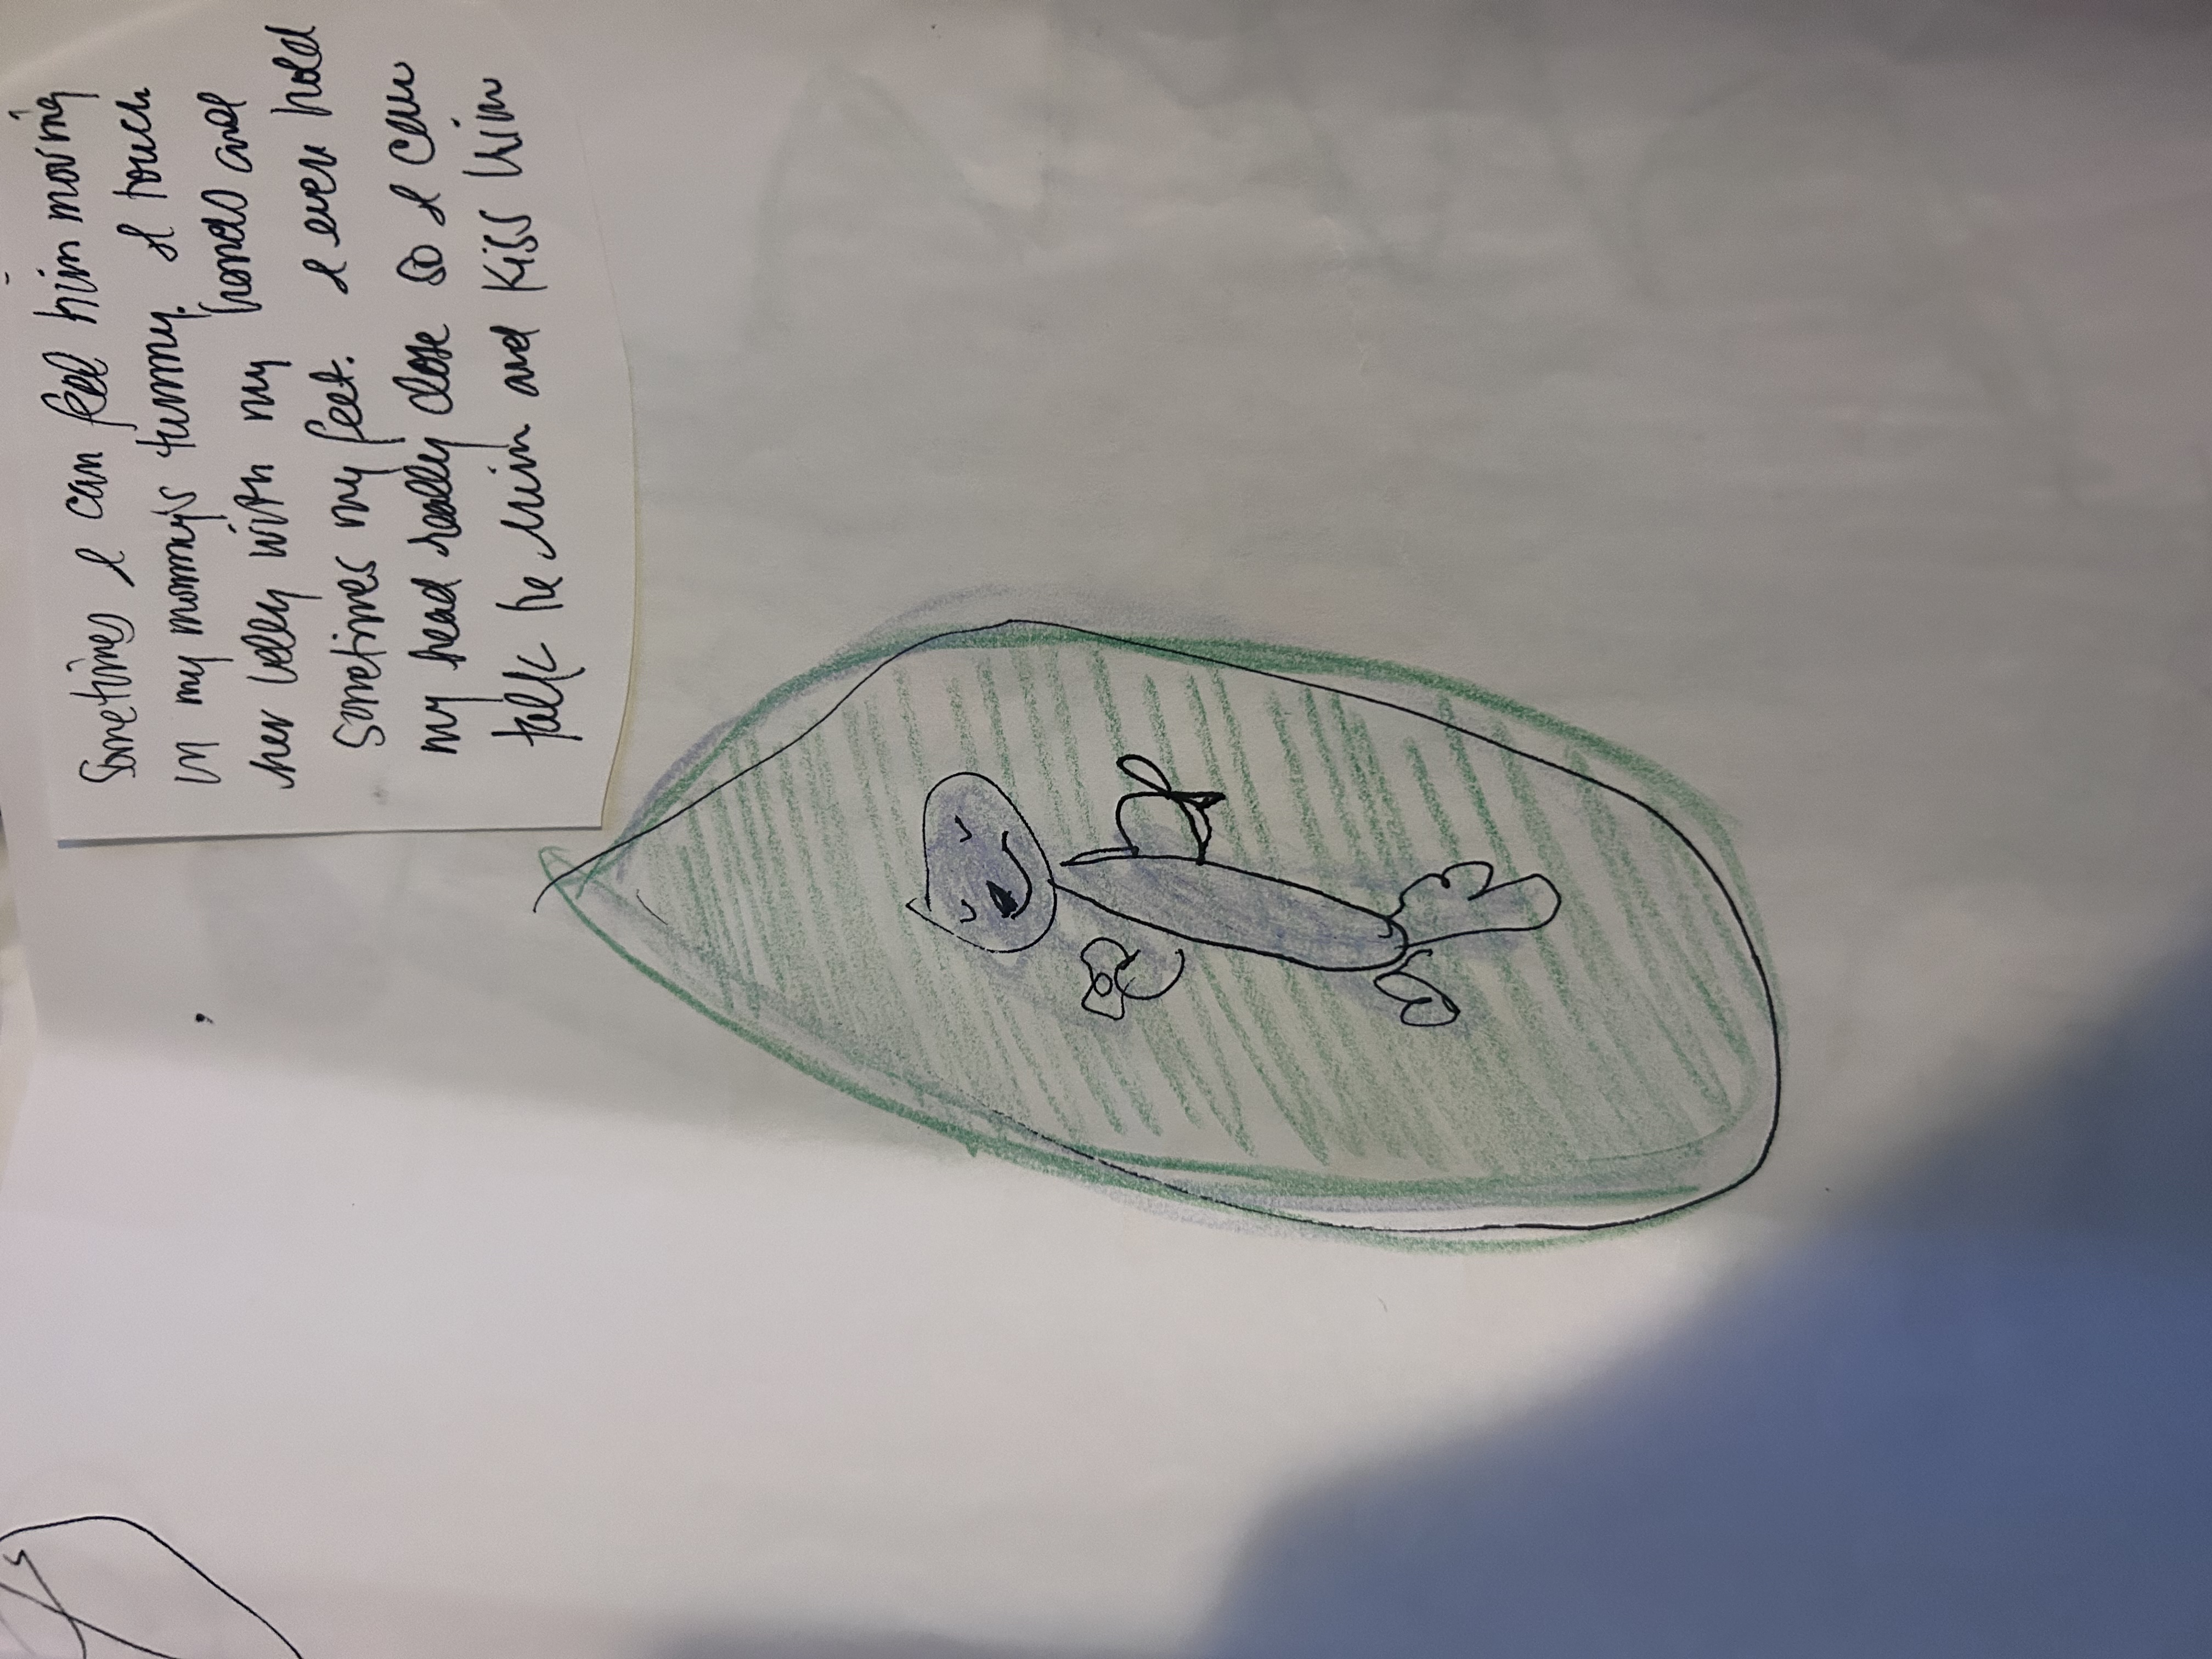 Sometimes I can feel him moving
in my mommy's tummy. I touch
her belly with my hands and
sometimes my feet. I even hold
my head really close so I can
talk to him and kiss him